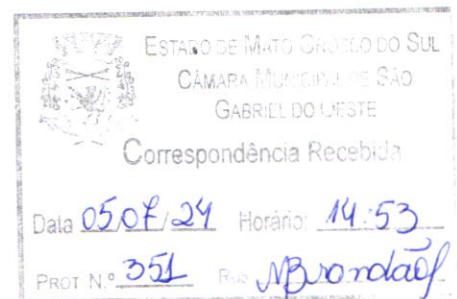 ESTADO DE MATO GROSSO DO SUL
CÂMARA MUNICIPAL DE SÃO
GABRIEL DO OESTE
Correspondência Recebida
Data 05/07/24 Horário: 14:53
PROT N.º 351